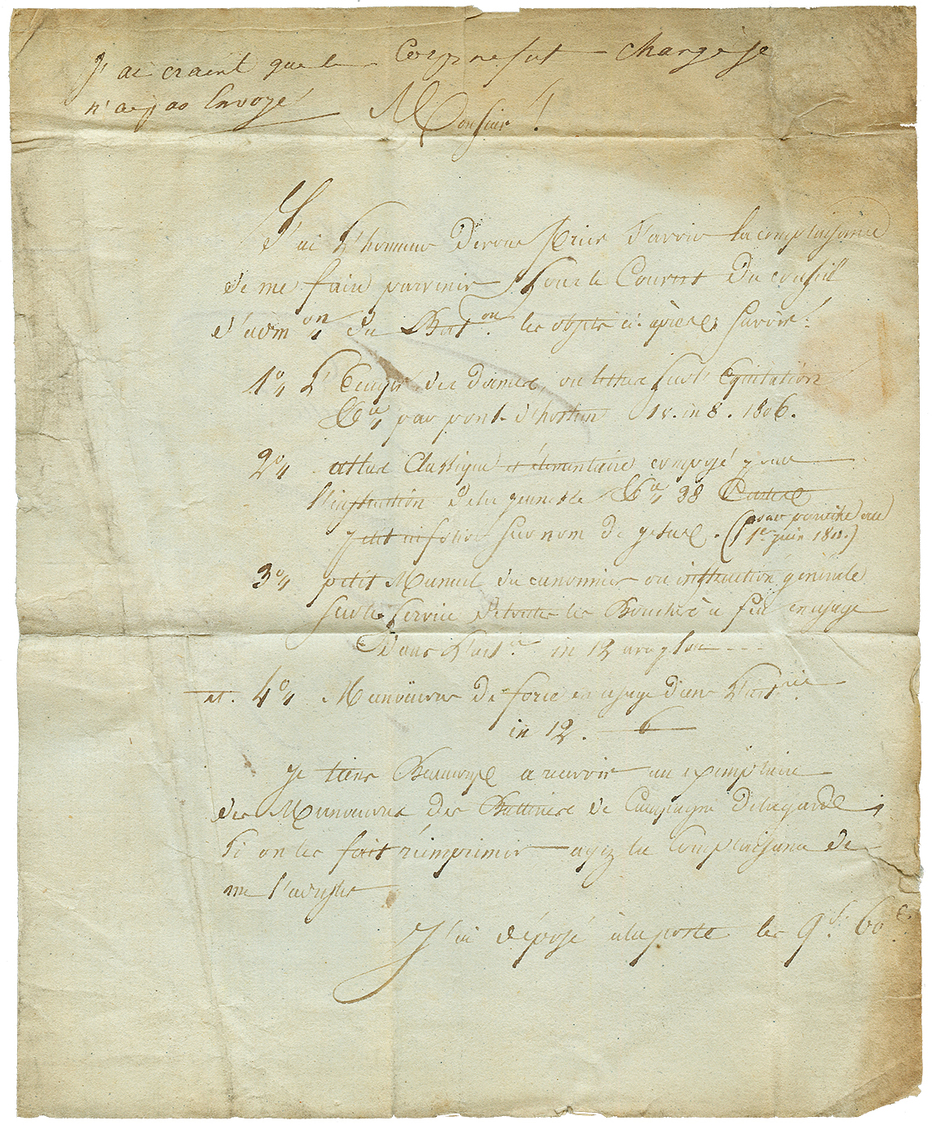 J'ai craint que le Corps ne fut change je
n'ai pas Envoyé
Monsieur !
J'ai L'honneur de vous prier d'avoir la complaisance
de me faire parvenir sous le Couvert du conseil
d'adm^on du Bat^on les objets ci après, savoir :
1° L'Ecuyer des dames ou lettres sur l'Equitation
&a par pons d'hostun 1 v. in 8. 1806.
2° atlas Classique et élémentaire composé pour
l'instruction de la jeunesse &a 38 Cartes
petit in folio sur nom de jesus. (pour paroître au
1er juin 180.)
3° petit Manuel du canonnier ou instruction générale
sur le service de toutes les Bouches à feu en usage
Dans L'art^ie in 12
et. 4° Manœuvres de force en usage dans L'art^ie
in 12. 6
Je tiens Beaucoup a recevoir un exemplaire
des Manœuvres des Batteries de Campagne de la garde,
Si on les fait réimprimer ayez la Complaisance de
me l'aviser
J'ai déposé à la poste les 9 f. 60 c.